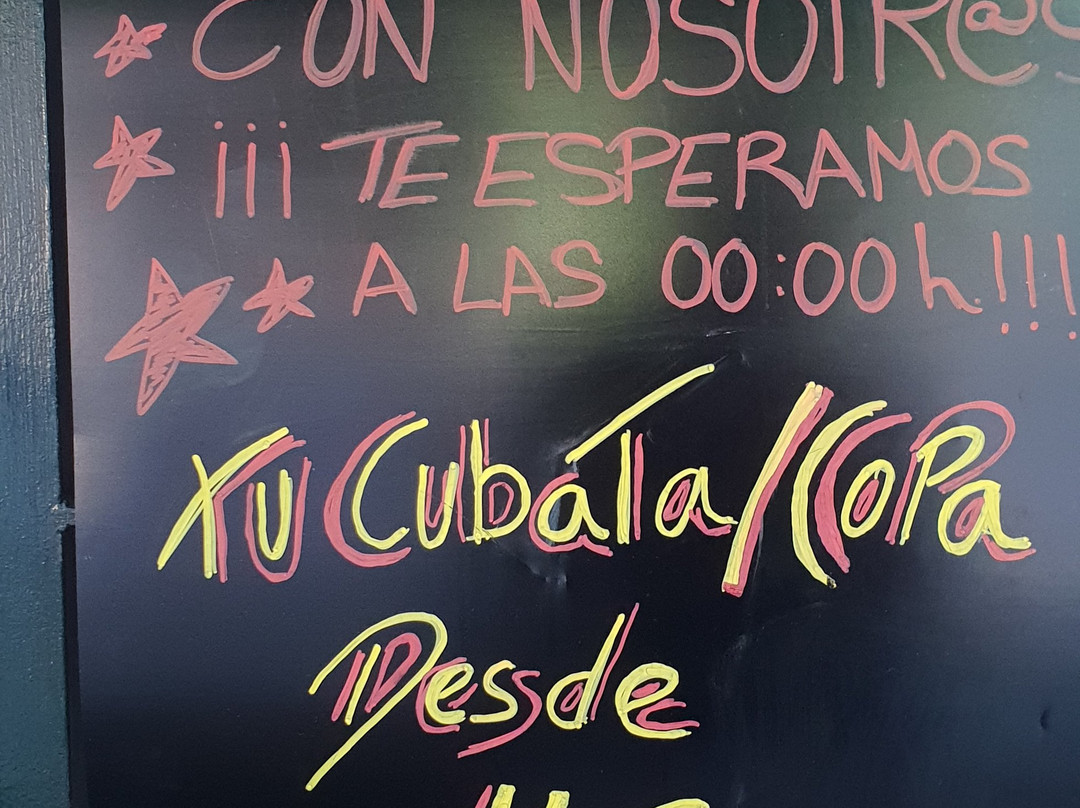 CON NOSOTR@S
¡¡¡ TE ESPERAMOS
A LAS 00:00h.!!!
TU CubaTa/CoPa
Desde